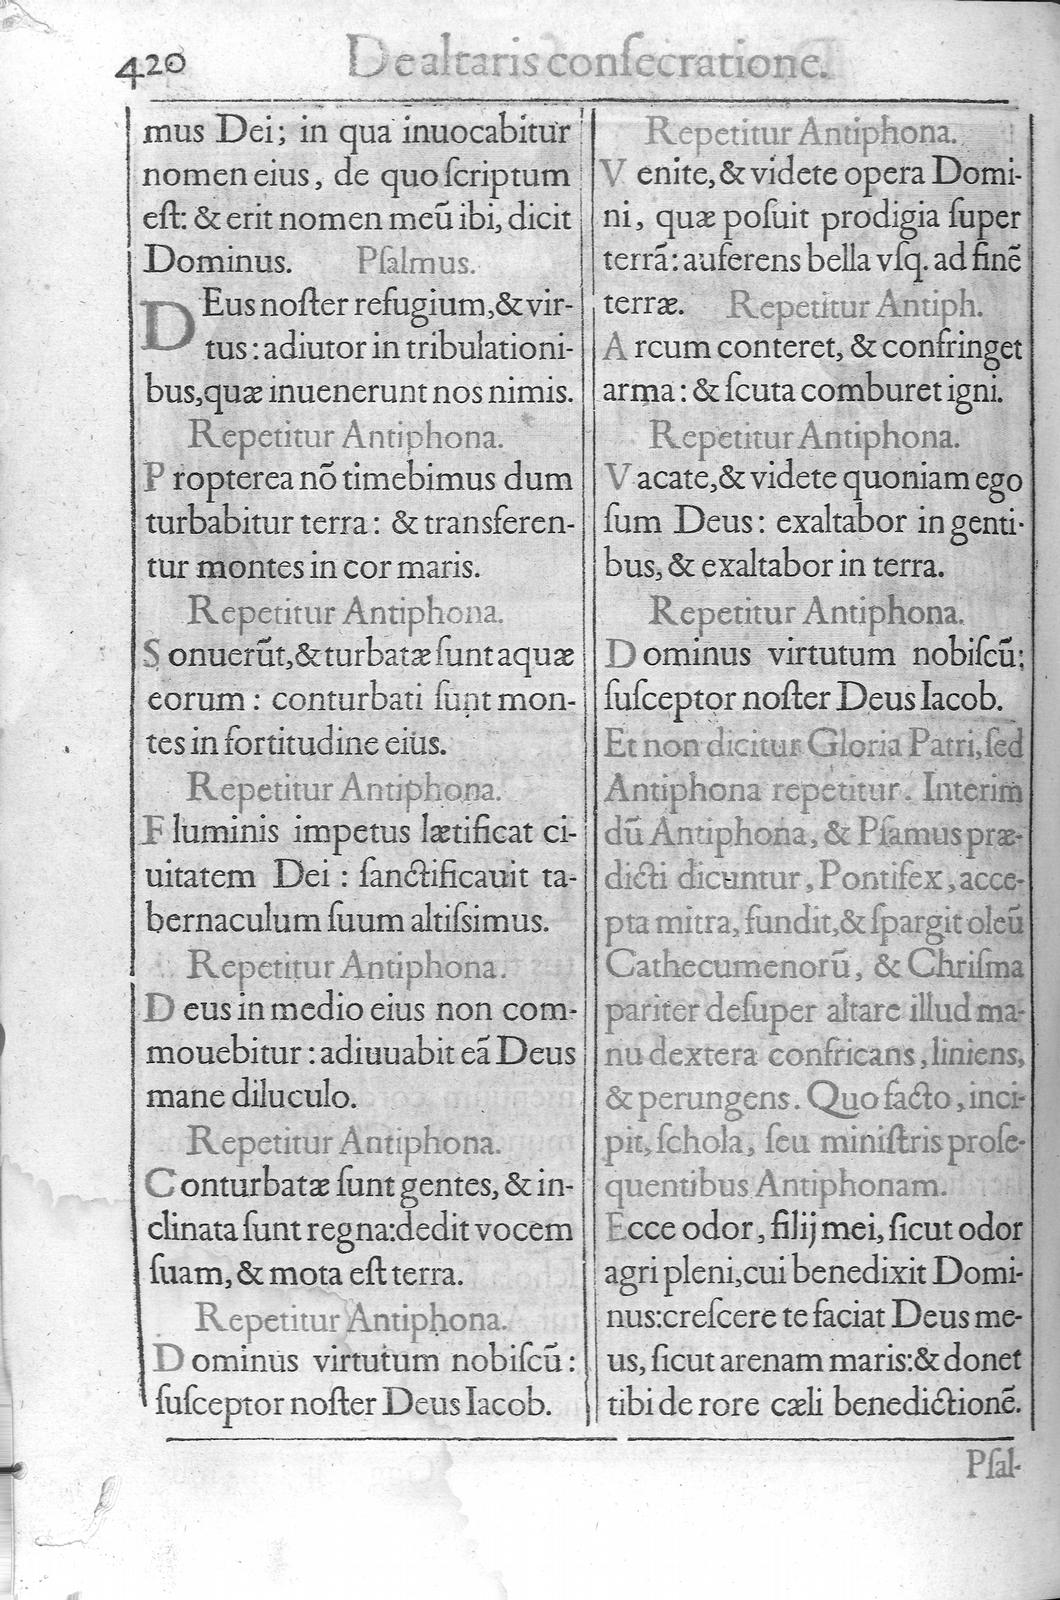 420 De altaris conſecratione.
mus Dei; in qua inuocabitur
nomen eius, de quo ſcriptum
eſt: & erit nomen meū ibi, dicit
Dominus. Pſalmus.
DEus noſter refugium, & vir-
tus: adiutor in tribulationi-
bus, quæ inuenerunt nos nimis.
Repetitur Antiphona.
Propterea nō timebimus dum
turbabitur terra: & transferen-
tur montes in cor maris.
Repetitur Antiphona.
Sonuerūt, & turbatæ ſunt aquæ
eorum: conturbati ſunt mon-
tes in fortitudine eius.
Repetitur Antiphona.
Fluminis impetus lætificat ci-
uitatem Dei: ſanctificauit ta-
bernaculum ſuum altiſsimus.
Repetitur Antiphona.
Deus in medio eius non com-
mouebitur: adiuuabit eā Deus
mane diluculo.
Repetitur Antiphona.
Conturbatæ ſunt gentes, & in-
clinata ſunt regna: dedit vocem
ſuam, & mota eſt terra.
Repetitur Antiphona.
Dominus virtutum nobiſcū:
ſuſceptor noſter Deus Iacob.
Repetitur Antiphona.
Venite, & videte opera Domi-
ni, quæ poſuit prodigia ſuper
terrā: auferens bella vſq. ad finē
terræ. Repetitur Antiph.
Arcum conteret, & confringet
arma: & ſcuta comburet igni.
Repetitur Antiphona.
Vacate, & videte quoniam ego
ſum Deus: exaltabor in genti-
bus, & exaltabor in terra.
Repetitur Antiphona.
Dominus virtutum nobiſcū:
ſuſceptor noſter Deus Iacob.
Et non dicitur Gloria Patri, ſed
Antiphona repetitur. Interim
dū Antiphona, & Pſamus præ-
dicti dicuntur, Pontifex, acce-
pta mitra, fundit, & ſpargit oleū
Cathecumenorū, & Chriſma
pariter deſuper altare illud ma-
nu dextera confricans, liniens,
& perungens. Quo facto, inci-
pit, ſchola, ſeu miniſtris proſe-
quentibus Antiphonam.
Ecce odor, filij mei, ſicut odor
agri pleni, cui benedixit Domi-
nus: creſcere te faciat Deus me-
us, ſicut arenam maris: & donet
tibi de rore cæli benedictionē.
Pſal-